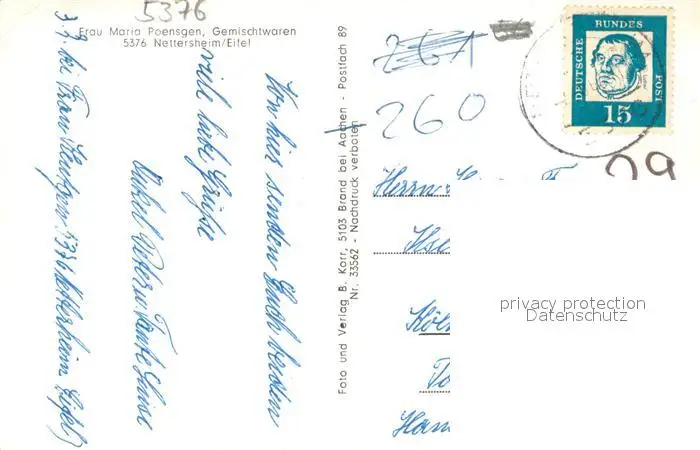 5376
Frau Maria Poensgen, Gemischtwaren
5376 Nettersheim/Eifel
Von hier senden Euch beiden
viele liebe Grüße
Onkel Peter u. Tante Luise
z. Z. bei Frau 5376 Nettersheim Eifel)
Foto und Verlag B. Korr, 5103 Brand bei Aachen - Postfach 89
Nr. 33562 - Nachdruck verboten
261
260
DEUTSCHE
BUNDES
POST
15
Herrn
Köln
privacy protection
Datenschutz